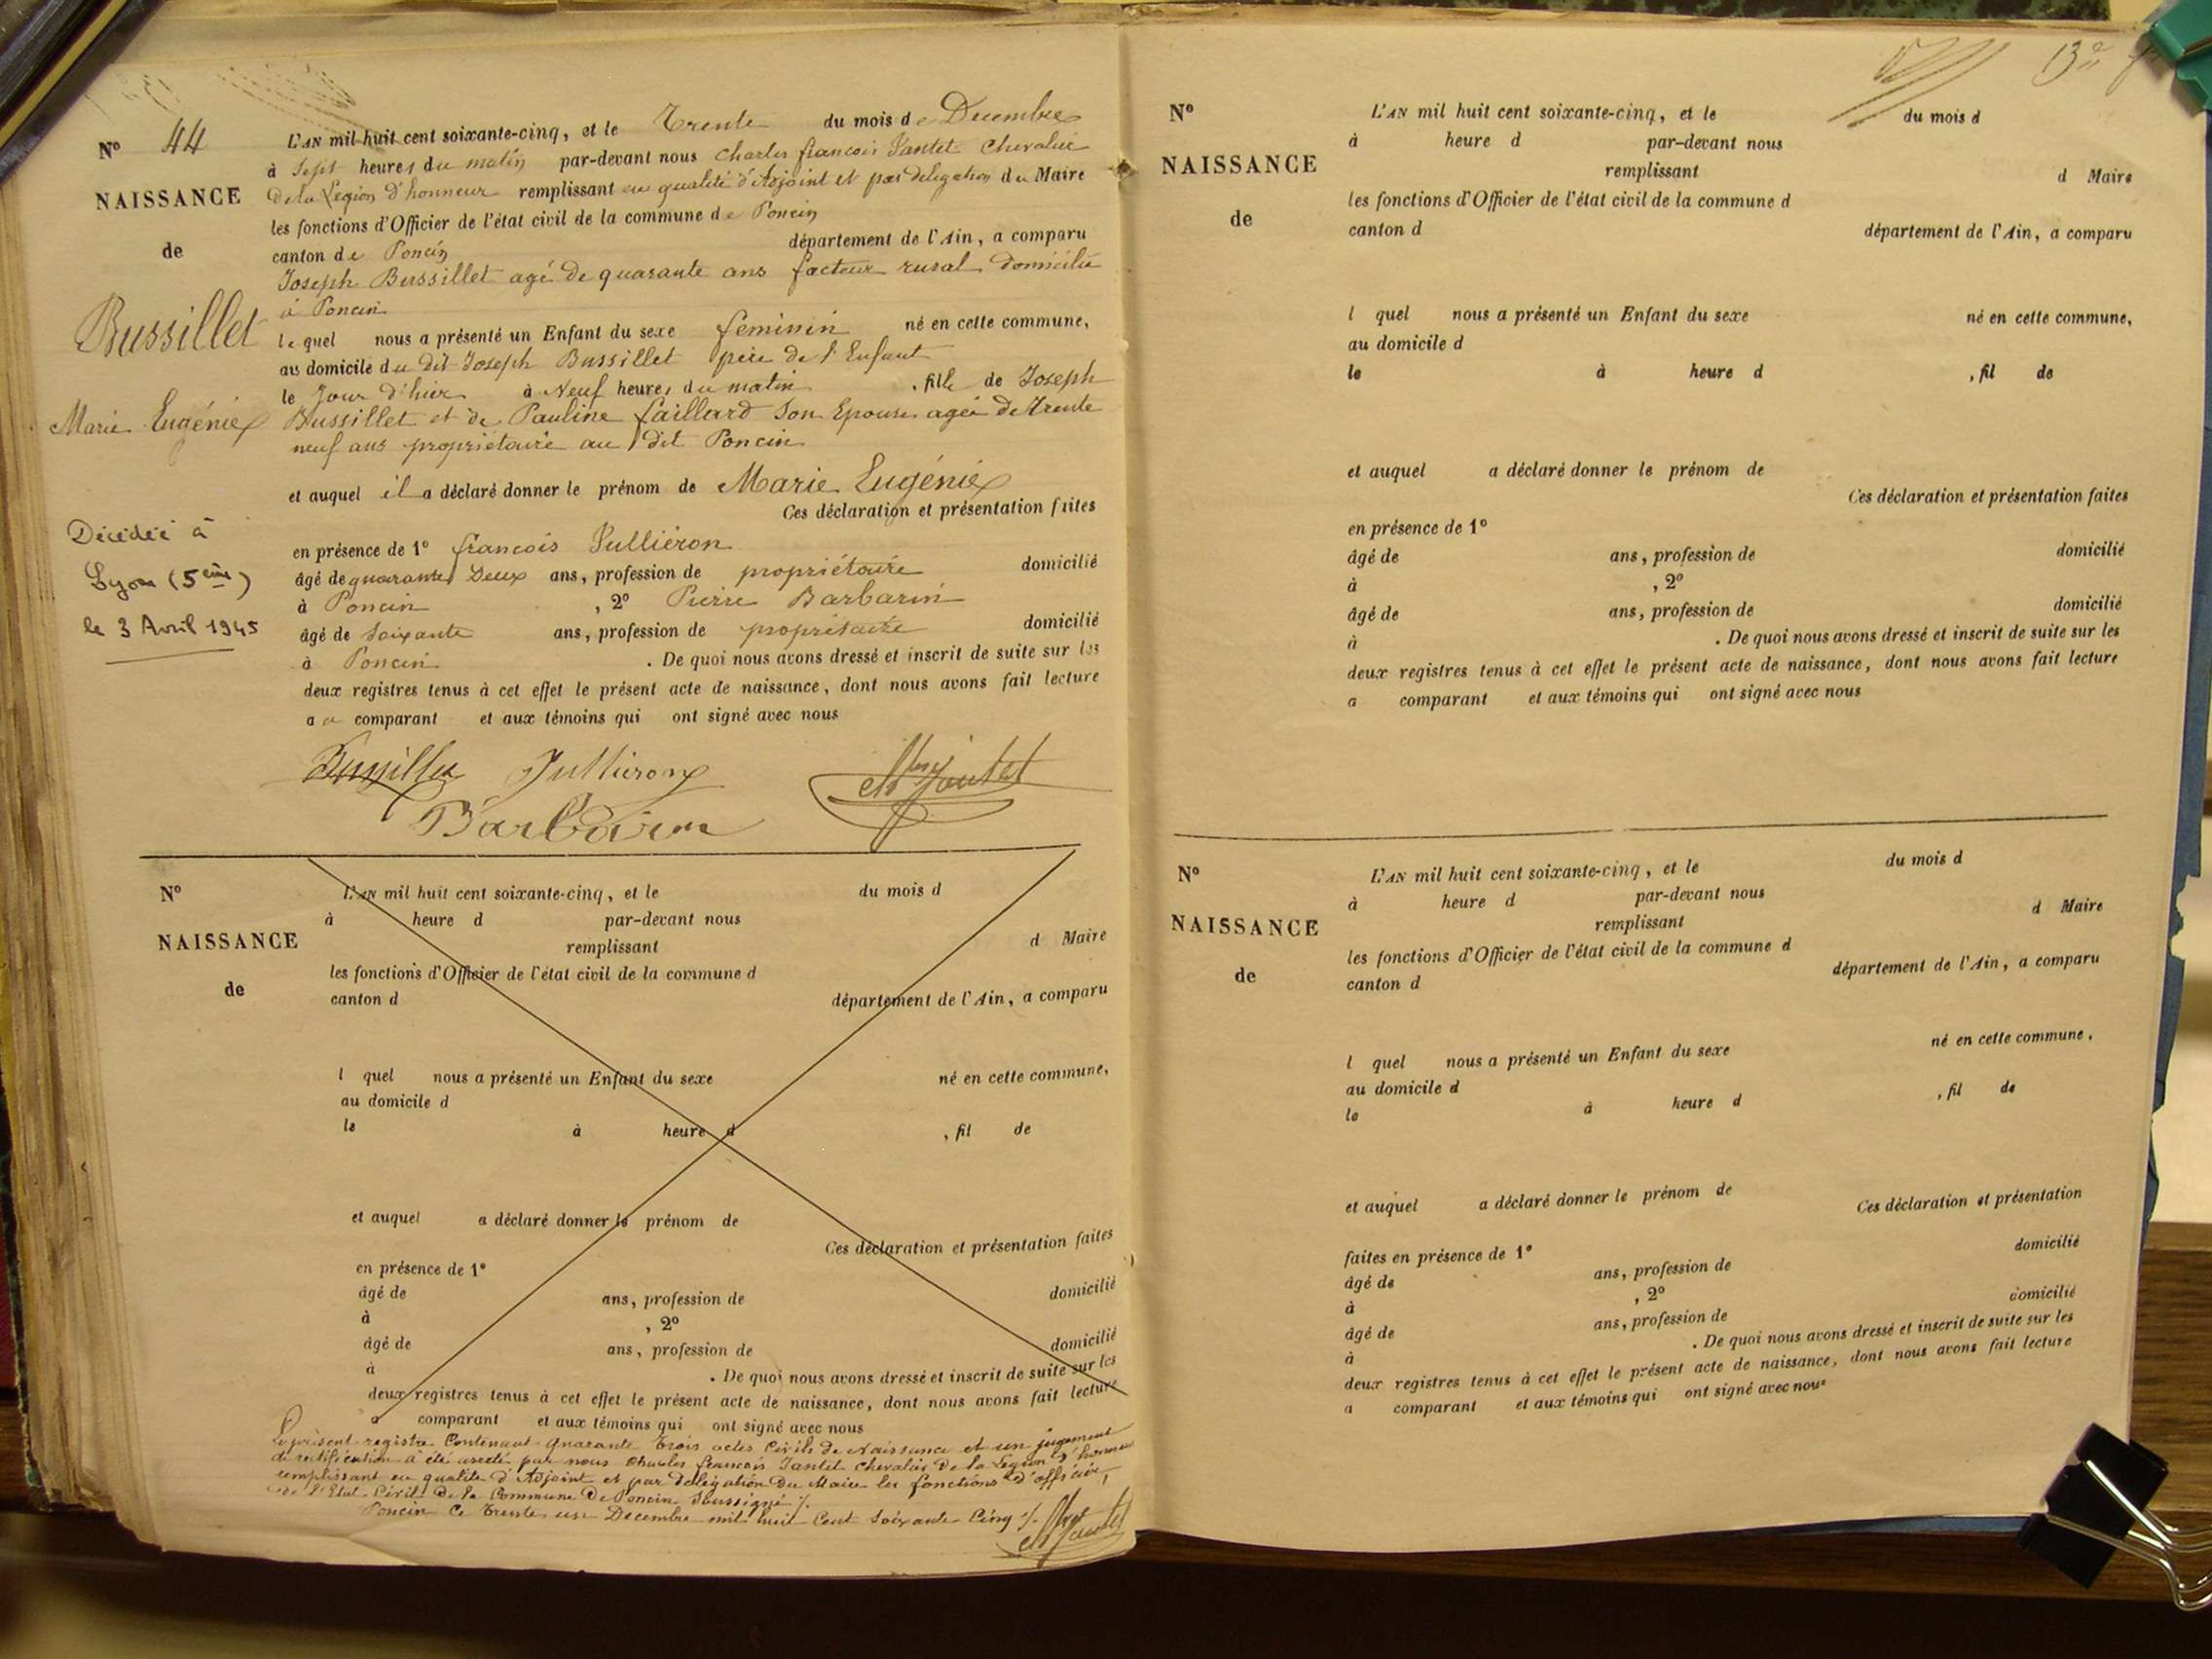 N° 44
NAISSANCE
de
Bussillet
Marie Eugénie
Décédée à
Lyon (5ème)
le 3 Avril 1945
L'AN mil huit cent soixante-cinq, et le Trente du mois de Decembre
à Sept heures du matin par-devant nous Charles françois Jantet Chevalier
De la Légion d'honneur remplissant en qualité d'Adjoint et par délégation du Maire
les fonctions d'Officier de l'état civil de la commune de Poncin
canton de Poncin département de l'Ain, a comparu
Joseph Bussillet agé de quarante ans facteur rural domicilié
à Poncin
lequel nous a présenté un Enfant du sexe feminin né en cette commune,
au domicile du dit Joseph Bussillet père de l'Enfant
le Jour d'hier à Neuf heures du matin, fille de Joseph
Bussillet et de Pauline faillard Son Epouse agée de trente
neuf ans propriétaire au dit Poncin
et auquel il a déclaré donner le prénom de Marie Eugénie
Ces déclaration et présentation faites
en présence de 1° françois Jullièron
âgé de quarante Deux ans, profession de propriétaire domicilié
à Poncin, 2° Pierre Barbarin
âgé de Soixante ans, profession de propriétaire domicilié
à Poncin. De quoi nous avons dressé et inscrit de suite sur les
deux registres tenus à cet effet le présent acte de naissance, dont nous avons fait lecture
au comparant et aux témoins qui ont signé avec nous
Bussillet Jullieron Ch les Jantet
Barbarin
N°
NAISSANCE
de
L'AN mil huit cent soixante-cinq, et le du mois d
à heure d par-devant nous
remplissant d Maire
les fonctions d'Officier de l'état civil de la commune d
canton d département de l'Ain, a comparu
l quel nous a présenté un Enfant du sexe né en cette commune,
au domicile d
le à heure d , fil de
et auquel a déclaré donner le prénom de
Ces déclaration et présentation faites
en présence de 1°
âgé de ans, profession de domicilié
à , 2°
âgé de ans, profession de domicilié
à . De quoi nous avons dressé et inscrit de suite sur les
deux registres tenus à cet effet le présent acte de naissance, dont nous avons fait lecture
a comparant et aux témoins qui ont signé avec nous
Le présent registre Contenant quarante trois actes Civils de Naissance et un jugement
de rectification à été arreté par nous Charles françois Jantet chevalier de la Légion d'honneur
remplissant en qualité d'Adjoint et par délégation Du Maire les fonctions d'officier
de l'Etat Civil De la Commune De Poncin Soussigné ./.
Poncin Ce trente un Decembre mil huit Cent Soixante Cinq ./. Ch les Jantet
13e
N°
NAISSANCE
de
L'AN mil huit cent soixante-cinq, et le du mois d
à heure d par-devant nous
remplissant d Maire
les fonctions d'Officier de l'état civil de la commune d
canton d département de l'Ain, a comparu
l quel nous a présenté un Enfant du sexe né en cette commune,
au domicile d
le à heure d , fil de
et auquel a déclaré donner le prénom de
Ces déclaration et présentation faites
en présence de 1°
âgé de ans, profession de domicilié
à , 2°
âgé de ans, profession de domicilié
à . De quoi nous avons dressé et inscrit de suite sur les
deux registres tenus à cet effet le présent acte de naissance, dont nous avons fait lecture
a comparant et aux témoins qui ont signé avec nous
N°
NAISSANCE
de
L'AN mil huit cent soixante-cinq, et le du mois d
à heure d par-devant nous
remplissant d Maire
les fonctions d'Officier de l'état civil de la commune d
canton d département de l'Ain, a comparu
l quel nous a présenté un Enfant du sexe né en cette commune,
au domicile d
le à heure d , fil de
et auquel a déclaré donner le prénom de
Ces déclaration et présentation
faites en présence de 1°
âgé de ans, profession de domicilié
à , 2°
âgé de ans, profession de domicilié
à . De quoi nous avons dressé et inscrit de suite sur les
deux registres tenus à cet effet le présent acte de naissance, dont nous avons fait lecture
a comparant et aux témoins qui ont signé avec nous